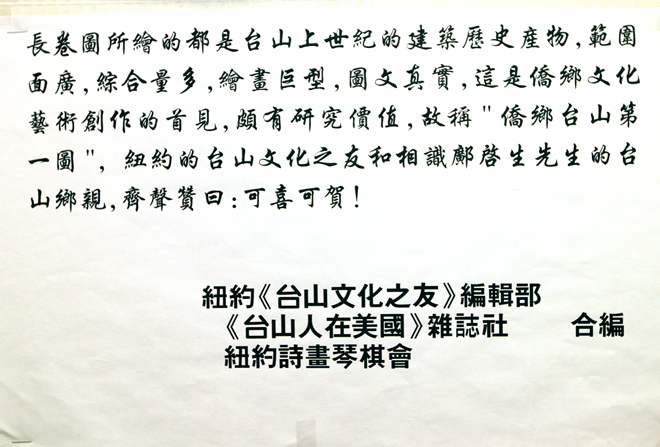 長卷圖所繪的都是台山上世紀的建築歷史產物,範圍
面廣,綜合量多,繪畫巨型,圖文真實,這是僑鄉文化
藝術創作的首見,頗有研究價值,故稱"僑鄉台山第
一圖",紐約的台山文化之友和相識鄺啓生先生的台
山鄉親,齊聲贊曰:可喜可賀!
紐約《台山文化之友》編輯部
《台山人在美國》雜誌社 合編
紐約詩畫琴棋會